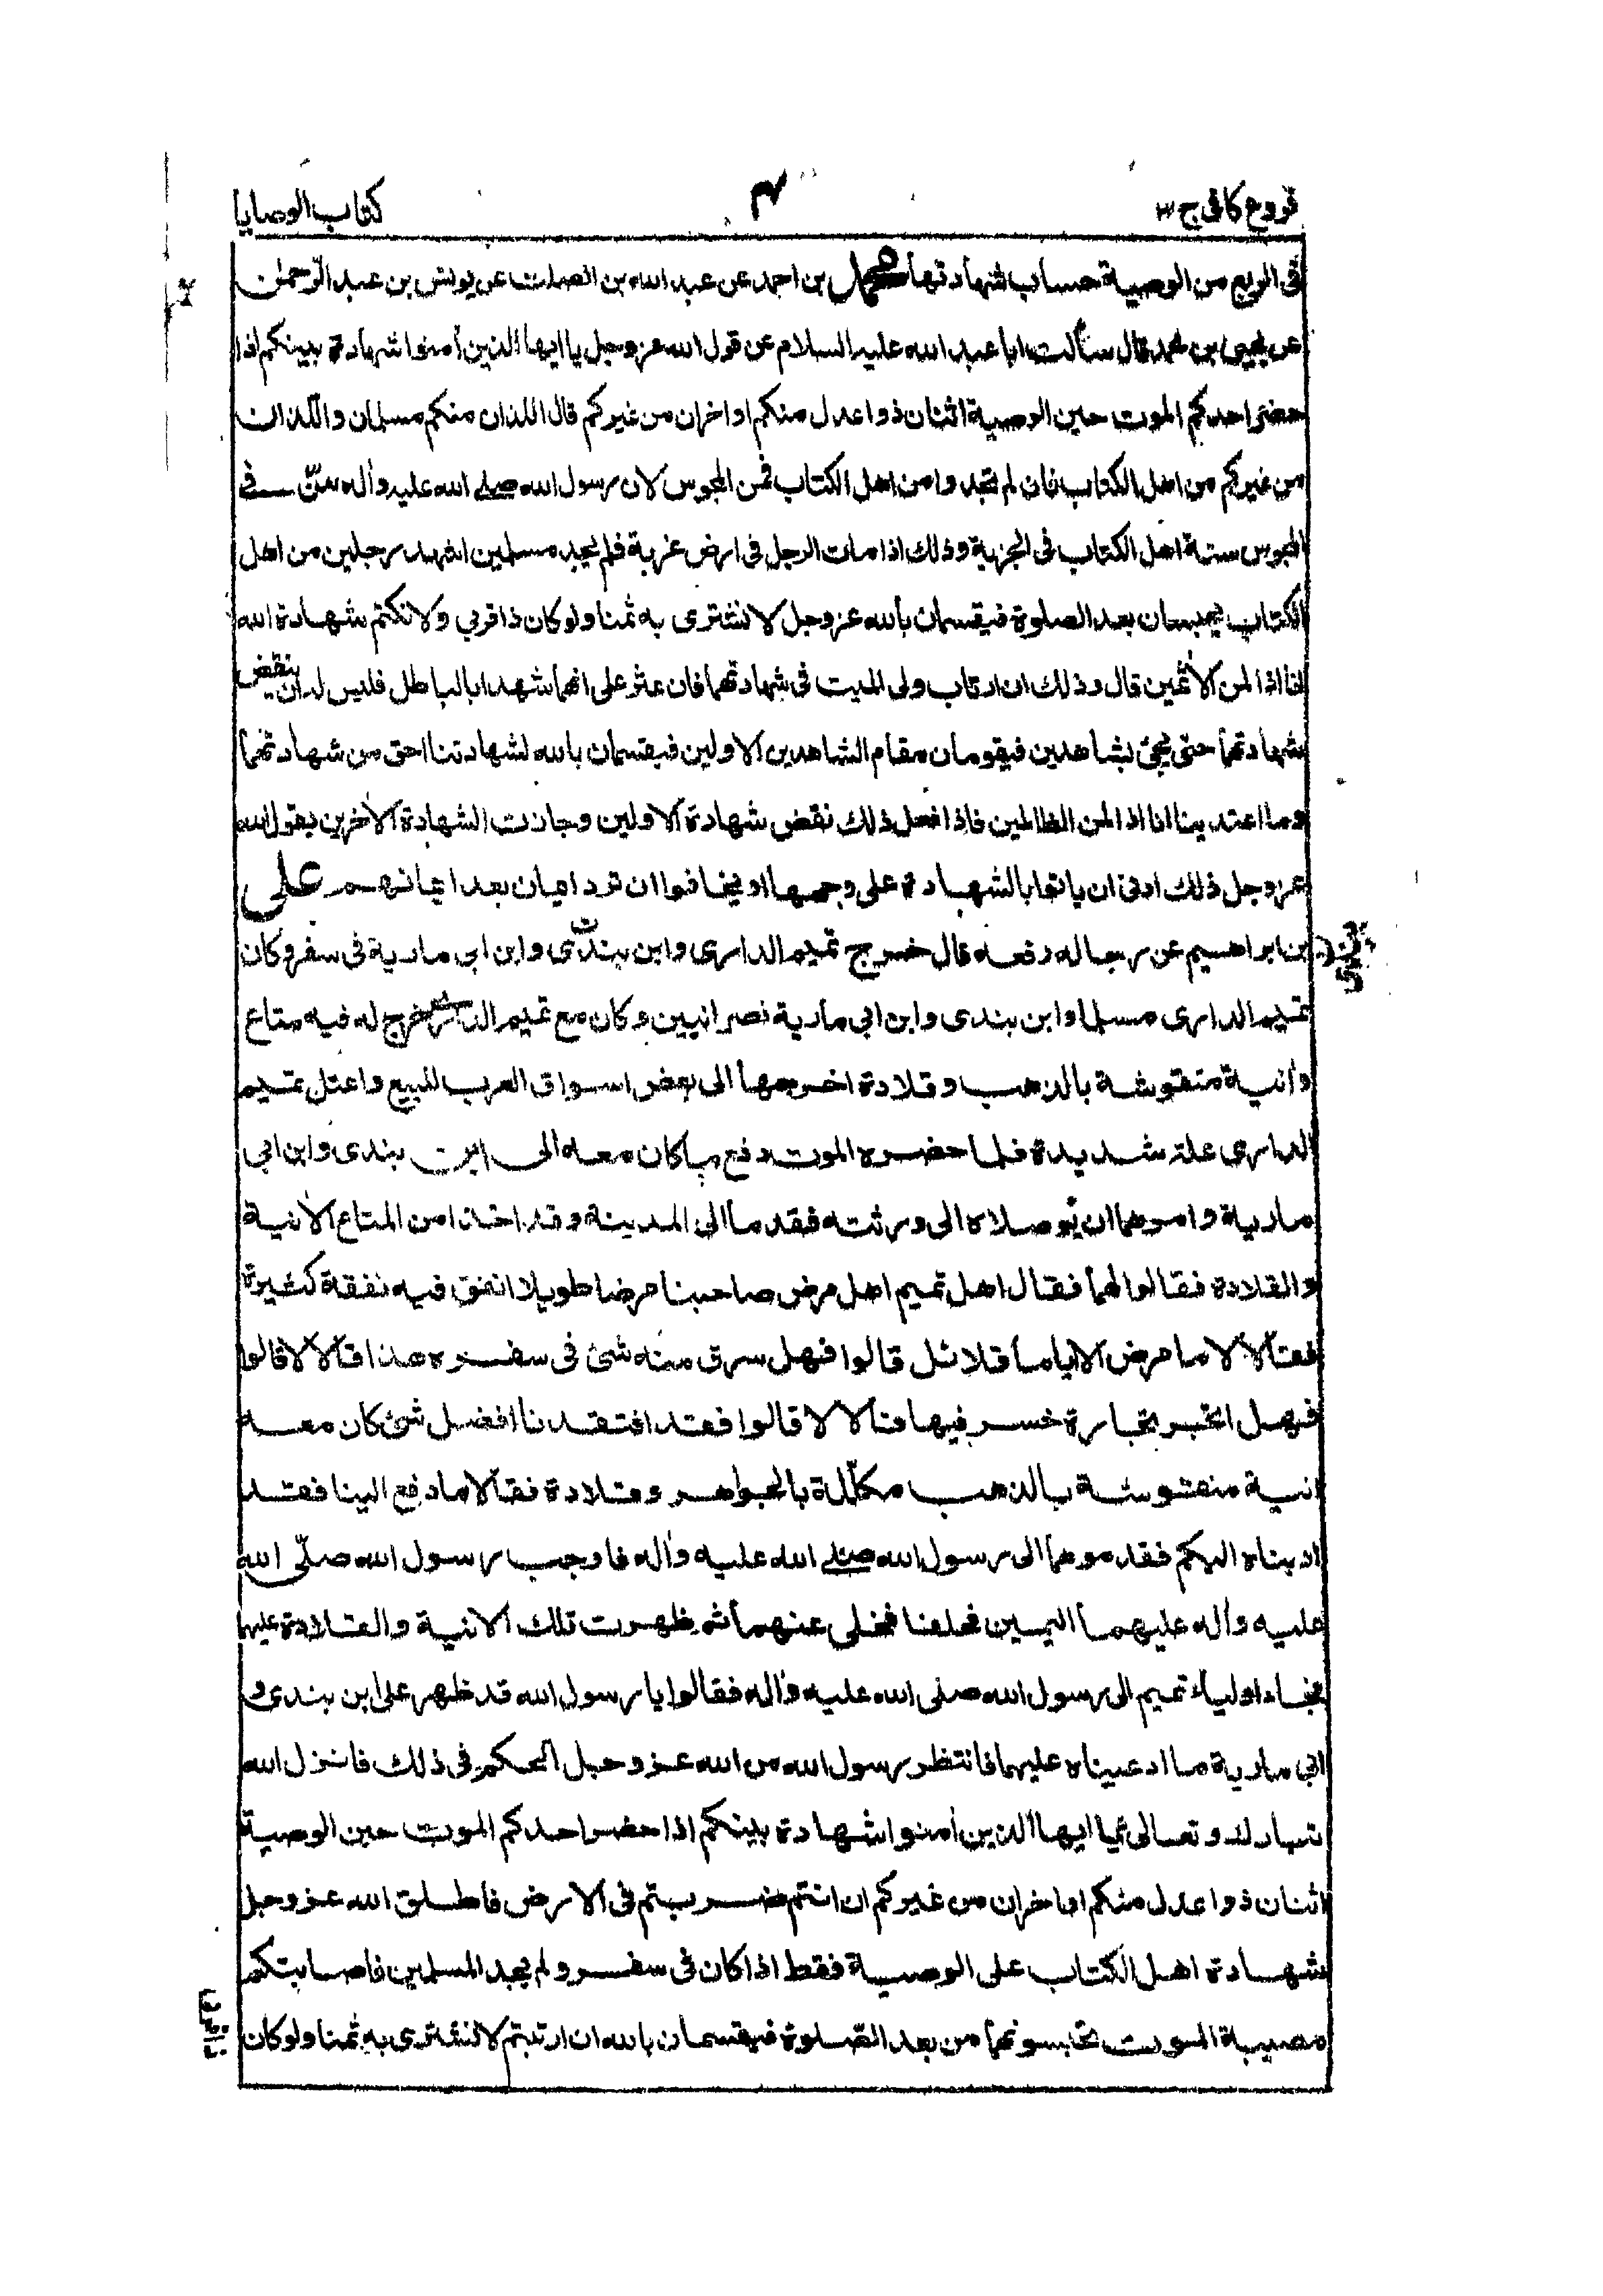 فروع كافى ج ٣
٤
كتاب الوصايا
فى الربع من الوصية حساب شهادتها محمد بن احمد عن عبد الله بن الصلت عن يونس بن عبد الرّحمٰن
عن يحيى بن محمد قال سألت ابا عبد الله عليه السلام عن قول الله عزوجل يا ايها الذين أمنوا شهادة بينكم اذا
حضر احدكم الموت حين الوصية اثنان ذوا عدل منكم او اخران من غيركم قال اللذان منكم مسلمان واللّذان
من غيركم من اهل الكتاب فان لم تجدوا من اهل الكتاب فمن المجوس لان رسول الله صلے الله عليه وأله سنّ فى
المجوس سنة اهل الكتاب فى الجزية وذلك اذا مات الرجل فى ارض غربة فلم يجد مسلمين اشهد رجلين من اهل
الكتاب يحبسان بعد الصلوة فيقسمان بالله عزوجل لا نشترى به ثمنا ولو كان ذا قربي ولا نكتم شهادة الله
انا اذا لمن الأثمين قال وذلك ان ارتاب ولى الميت فى شهادتهما فان عثر على انهما شهدا بالباطل فليس له ان ينقض
شهادتهما حتى يجئ بشاهدين فيقومان مقام الشاهدين الاولين فيقسمان بالله لشهادتنا احق من شهادتهما
وما اعتدينا انا اذا لمن الظالمين فاذا فعل ذلك نقض شهادة الاولين وجازت الشهادة الأخرين بقول الله
عزوجل ذلك ادنى ان ياتوا بالشهادة على وجهها او يخافوا ان ترد ايمان بعد ايمانهم على
بن ابراهيم عن رجاله رفعه قال خرج تميم الدارى وابن بندى وابن ابى مارية فى سفر وكان
تميم الدارى مسلما وابن بندى وابن ابي مارية نصرانيين وكان مع تميم الدارى خرج له فيه متاع
وأنية منقوشة بالذهب وقلادة اخرجها الى بعض اسواق العرب للبيع واعتل تميم
الدارى علة شديدة فلما حضره الموت دفع ما كان معه الى ابن بندى وابن ابي
مارية وامرهما ان يوصلاه الى ورثته فقدما الى المدينة وقد اخذا من المتاع الأنية
والقلادة فقالوا لهما فقال اهل تميم اهل مرض صاحبنا مرضا طويلا انفق فيه نفقة كثيرة
فقالا لا ما مرض الا اياما قلائل قالوا فهل سرق منه شئ فى سفره هذا قالا لا قالوا
فهل اتجر تجارة خسر فيها قالا لا قالوا فقد افتقدنا افضل شئ كان معه
انية منقوشة بالذهب مكلّلة بالجواهر وقلادة فقالا ما دفع الينا فقد
اديناه اليكم فقدموهما الى رسول الله صلے الله عليه وأله فاوجب رسول الله صلّى الله
عليه وأله عليهما اليمين فحلفا فخلى عنهما ثم ظهرت تلك الانية والقلادة عليهما
فجاء اولياء تميم الى رسول الله صلى الله عليه وأله فقالوا يا رسول الله قد ظهر على ابن بندى و
ابى مارية ما ادعيناه عليهما فانتظر رسول الله من الله عزوجل الحكم فى ذلك فانزل الله
تبارك وتعالى يا ايها الذين أمنوا شهادة بينكم اذا حضر احدكم الموت حين الوصية
اثنان ذوا عدل منكم او اخران من غيركم ان انتم ضربتم فى الارض فاطلق الله عزوجل
شهادة اهل الكتاب على الوصية فقط اذا كان فى سفر ولم يجد المسلمين فاصابتكم
مصيبة الموت تحبسونهما من بعد الصّلوة فيقسمان بالله ان ارتبتم لا نشترى به ثمنا ولو كان